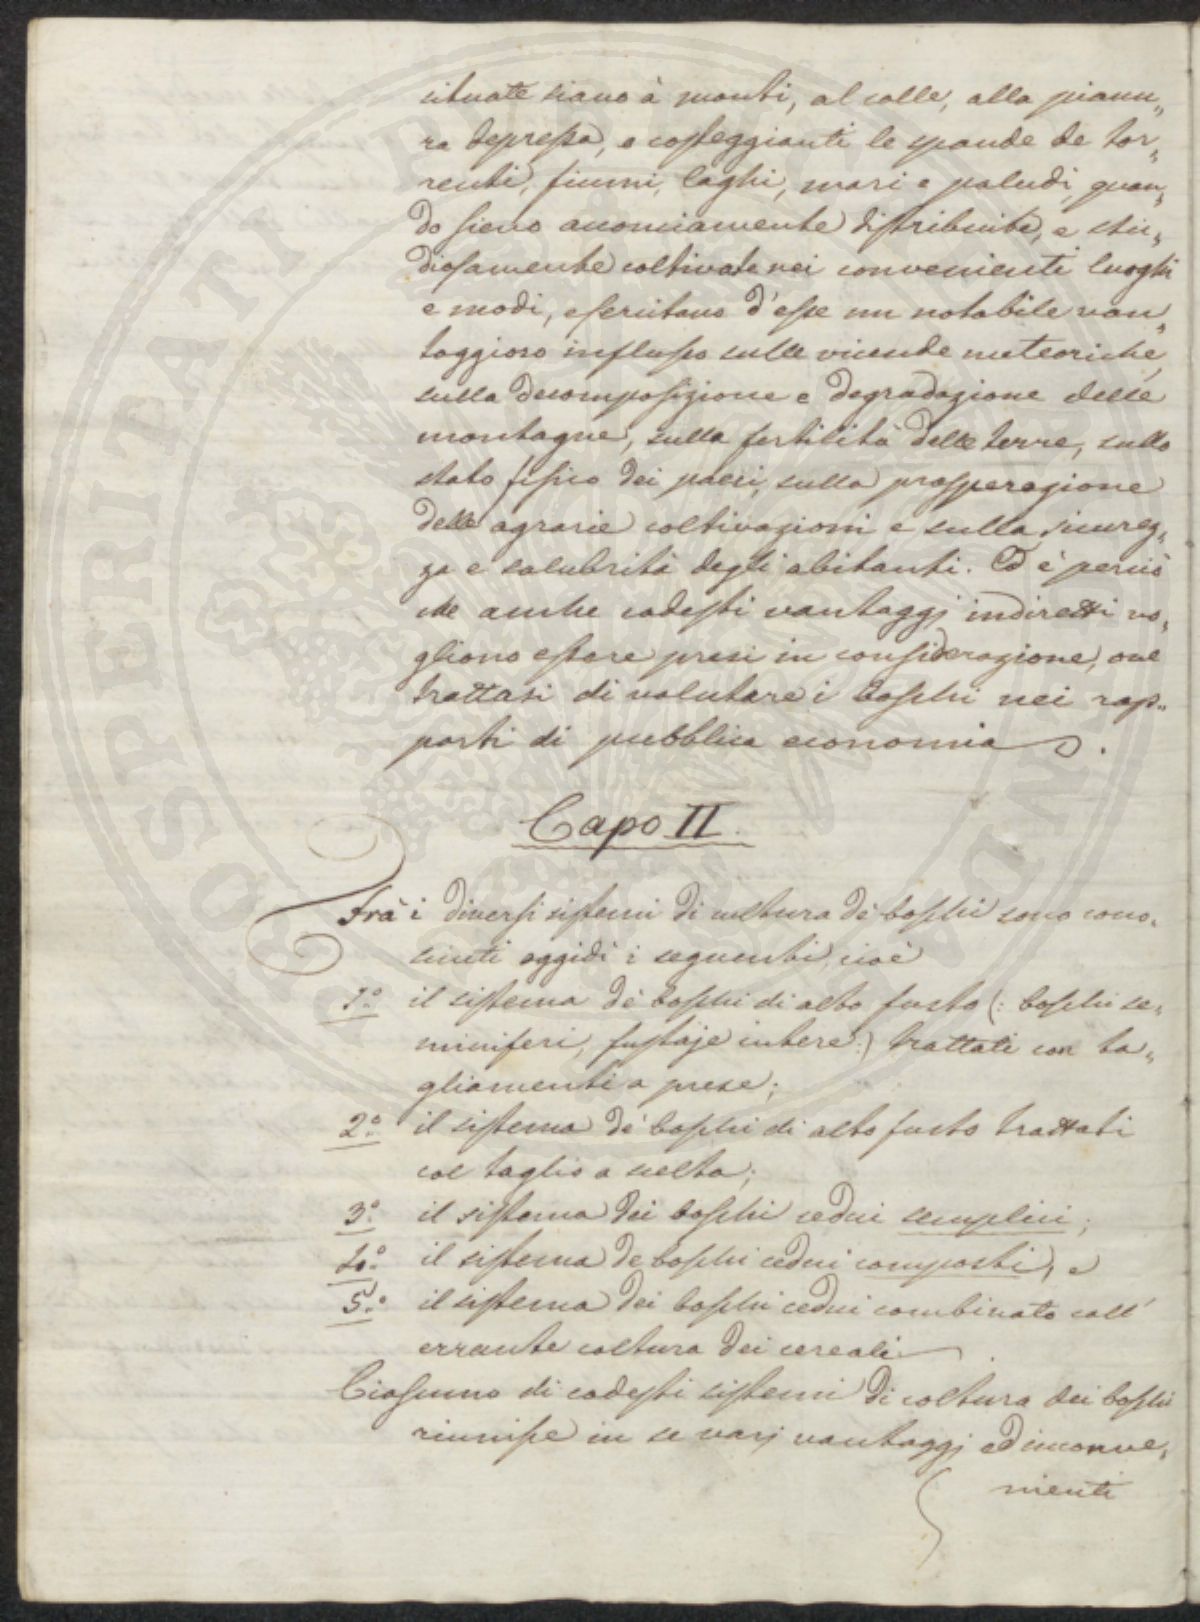 situate siano à monti, al colle, alla pianu„
ra depressa, e costeggianti le sponde de tor„
renti, fiumi, laghi, mari e paludi, quan„
do sieno acconciamente distribuite, e stu„
diosamente coltivate nei convenienti luoghi
e modi, esercitano d'esse un notabile van„
taggioso influsso sulle vicende meteoriche,
sulla decomposizione e degradazione delle
montagne, sulla fertilità delle terre, sullo
stato fisico dei paesi, sulla prosperazione
delle agrarie coltivazioni e sulla sicurez„
za e salubrità degli abitanti. Ed è perciò
che anche codesti vantaggj indiretti vo„
gliono essere presi in considerazione, ove
trattasi di valutare i boschi nei rap„
porti di pubblica economia.
Capo II.
Frà i diversi sistemi di coltura de' boschi sono cono„
sciuti oggidì i seguenti, cioè
1º il sistema de' boschi di alto fusto (: boschi se„
miniferi, fustaje intere:) trattati con ta„
gliamenti a prese;
2º il sistema de' boschi di alto fusto trattati
col taglio a scelta;
3º il sistema dei boschi cedui semplici;
4º il sistema de boschi cedui composti, e
5º il sistema dei boschi cedui combinato coll'
errante coltura dei cereali.
Ciascuno di codesti sistemi di coltura dei boschi
riunisce in se varj vantaggj ed inconve„
nienti
COSPERITATI PUBLICAE